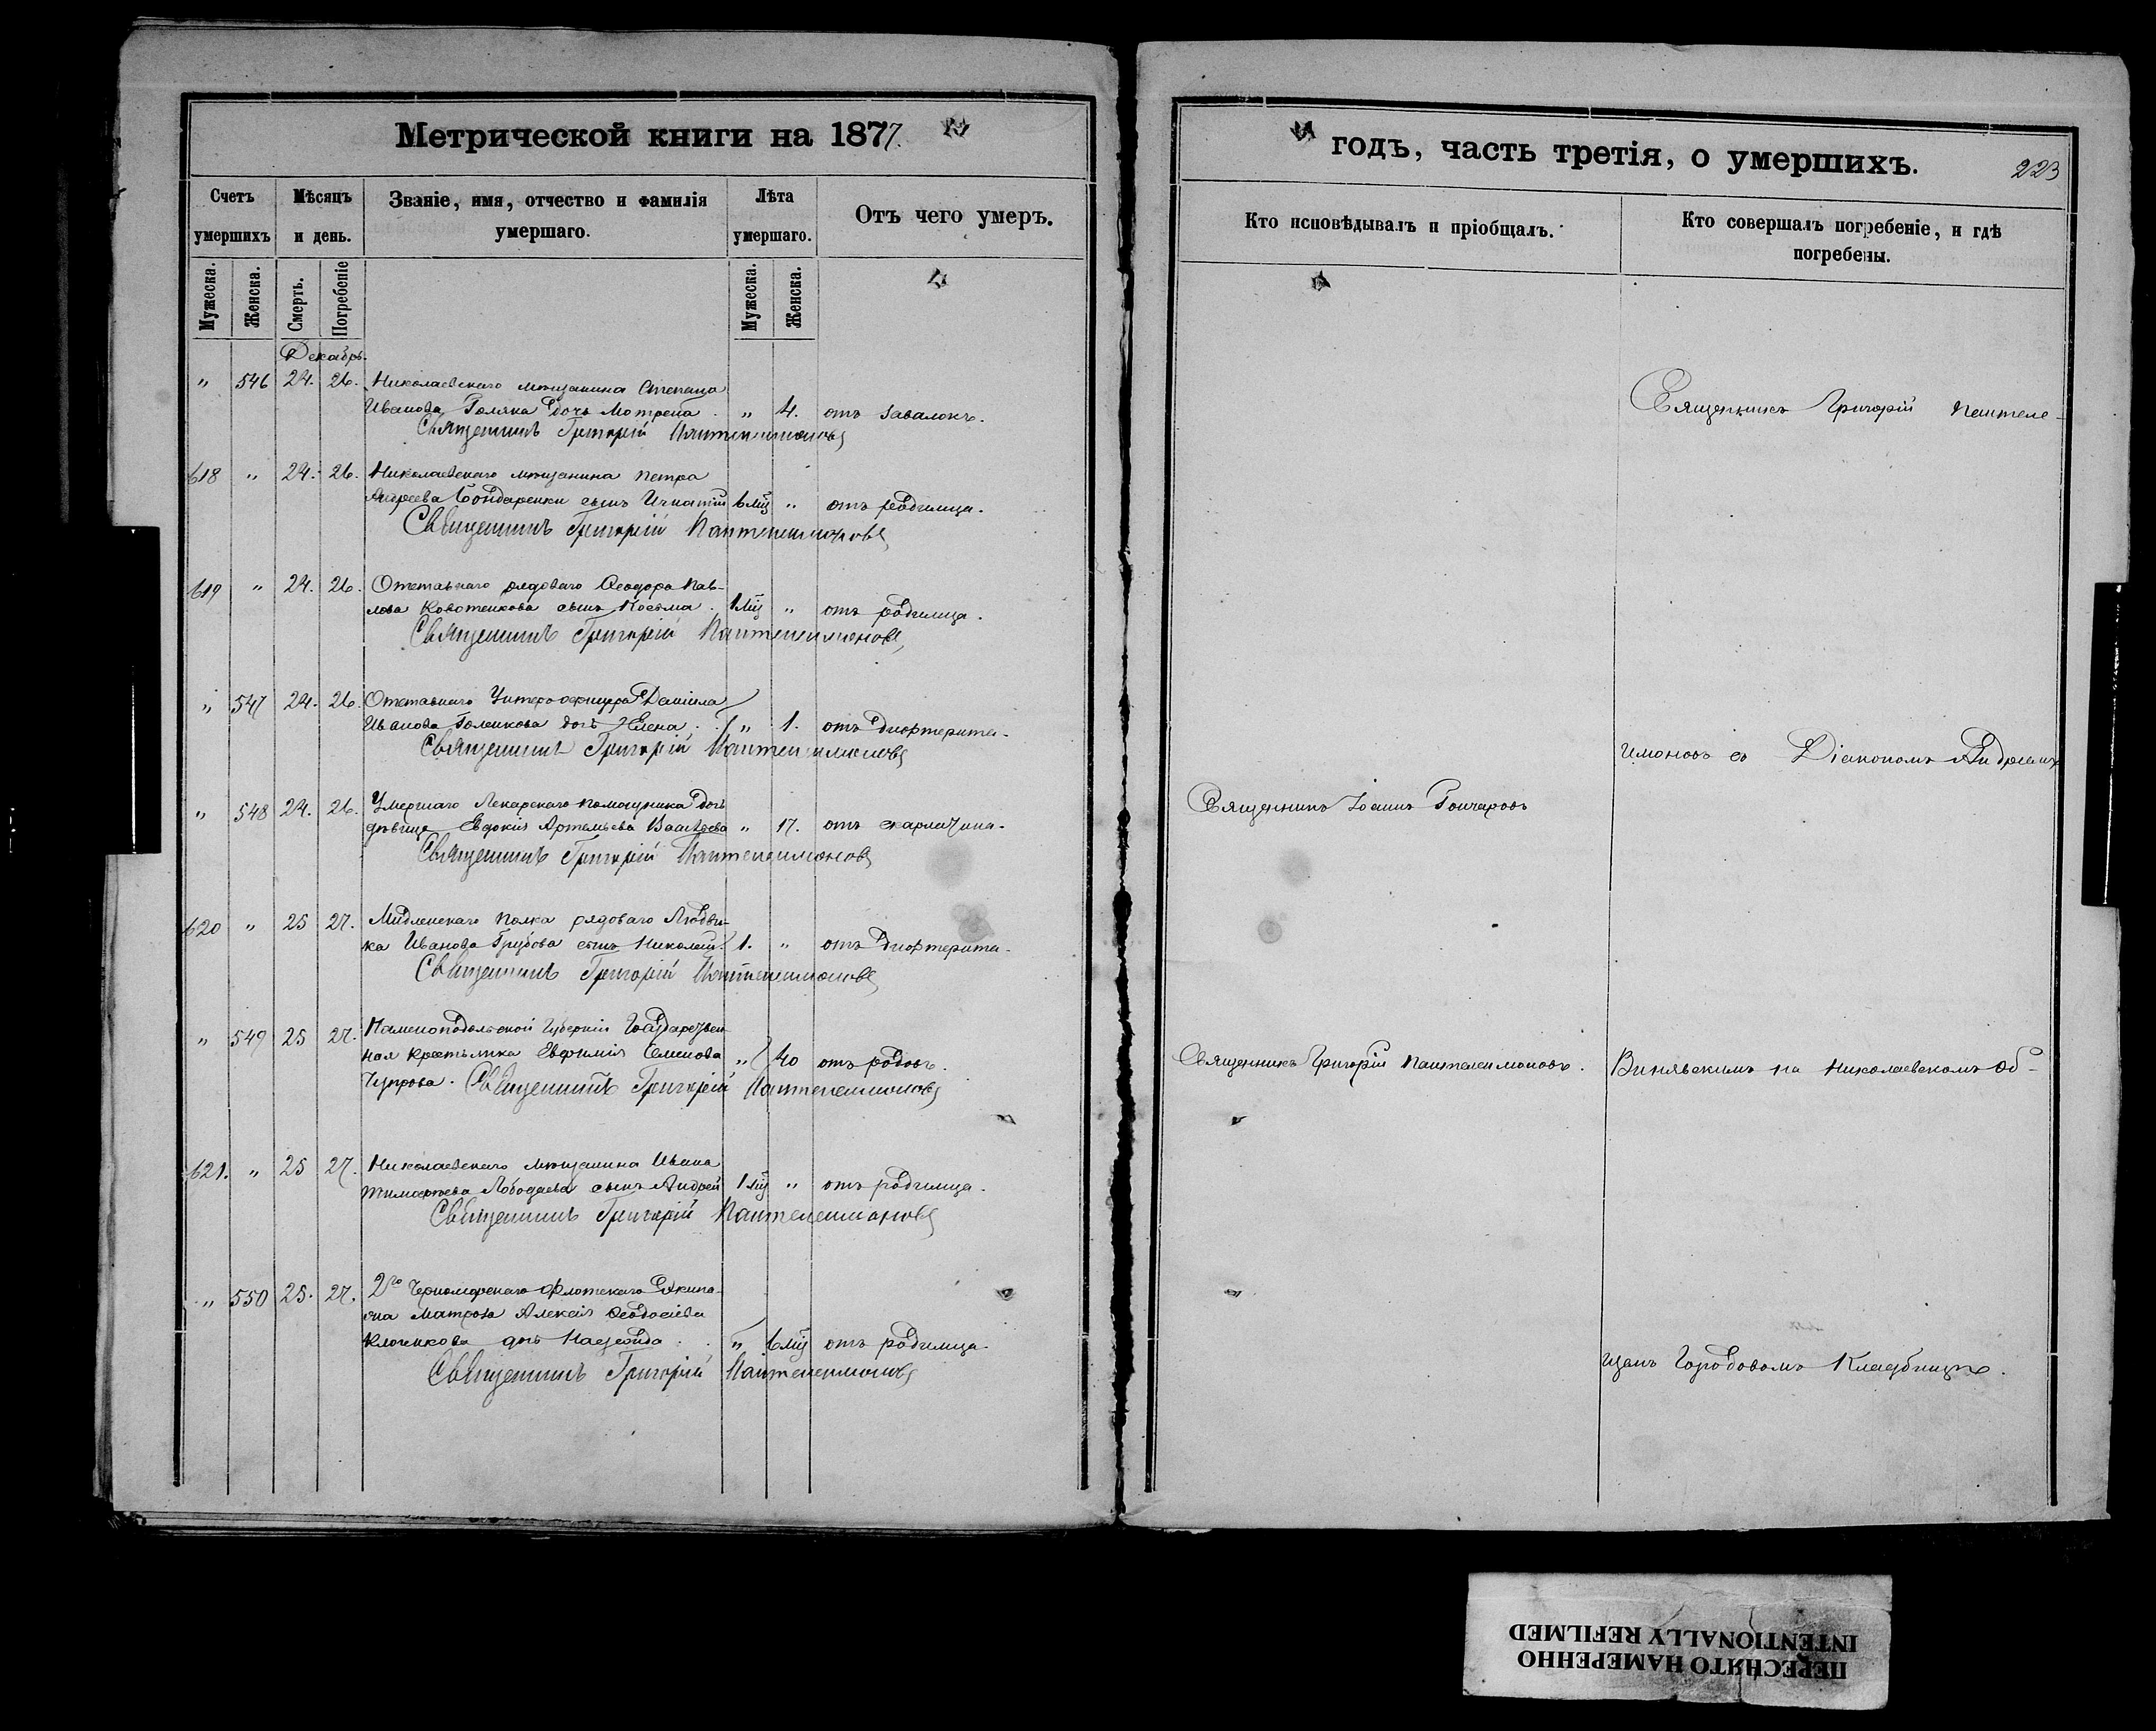 Метрической книги на 1877.
Счетъ умершихъ
Мѣсяцъ и день.
Званіе, имя, отчество и фамилія умершаго.
Лѣта умершаго.
Отъ чего умеръ.
Мужеска. Женска. Смерть. Погребеніе Мужеска. Женска.
Декабрь.
" 546 24. 26. Николаевскаго мѣщанина Степана
Иванова Голяка дочь Мотрена . " 4. отъ завалокъ.
Священникъ Григорій Пантелеимоновъ
618 " 24. 26. Николаевскаго мѣщанина Петра
Андреева Бондаренки сынъ Игнатій 6 мц " отъ родимца.
Священникъ Григорій Пантелеимоновъ
619 " 24. 26. Отставнаго рядоваго Ѳеодора Пав-
лова сынъ Косьма . 1 мц " отъ родимца.
Священникъ Григорій Пантелеимоновъ
" 547 24. 26. Отставнаго Унтеръ-офицера Даніила
Иванова Голикова дочь Елена . " 1. отъ дифтерита.
Священникъ Григорій Пантелеимоновъ
" 548 24. 26. Умершаго Лекарскаго помощника дочь
дѣвица Евдокія Артемьева " 17. отъ скарлатина.
Священникъ Григорій Пантелеимоновъ
620 " 25 27. полка рядоваго Людви-
ка Иванова Грубова сынъ Николай 1. " отъ дифтерита.
Священникъ Григорій Пантелеимоновъ
" 549 25 27. Каменоподольской Губерніи Государствен-
ная крестьянка Евфимія Семенова " 40 отъ родовъ.
Чупрова. Священникъ Григорій Пантелеимоновъ
621. " 25 27. Николаевскаго мѣщанина Ивана
Тимофеева Лободаева сынъ Андрей 1 мц " отъ родимца.
Священникъ Григорій Пантелеимоновъ
" 550 25. 27. 2го Черноморскаго Флотскаго Экипа-
жа матроса Алексія Ѳеодосіева
Клочкова дочь Надежда . " 6 мц отъ родимца.
Священникъ Григорій Пантелеимоновъ
годъ, часть третія, о умершихъ.
223
Кто исповѣдывалъ и пріобщалъ.
Кто совершалъ погребеніе, и гдѣ погребены.
Священникъ Григорій Пантеле-
имоновъ съ Діакономъ Андреемъ
Священникъ Іоаннъ Гончаровъ
Священникъ Григорій Пантелеимоновъ. Виняьскимъ на Николаевскомъ Об-
щемъ Городовомъ Кладбищѣ.
ПЕРЕСНЯТО НАМЕРЕННО
INTENTIONALLY REFILMED